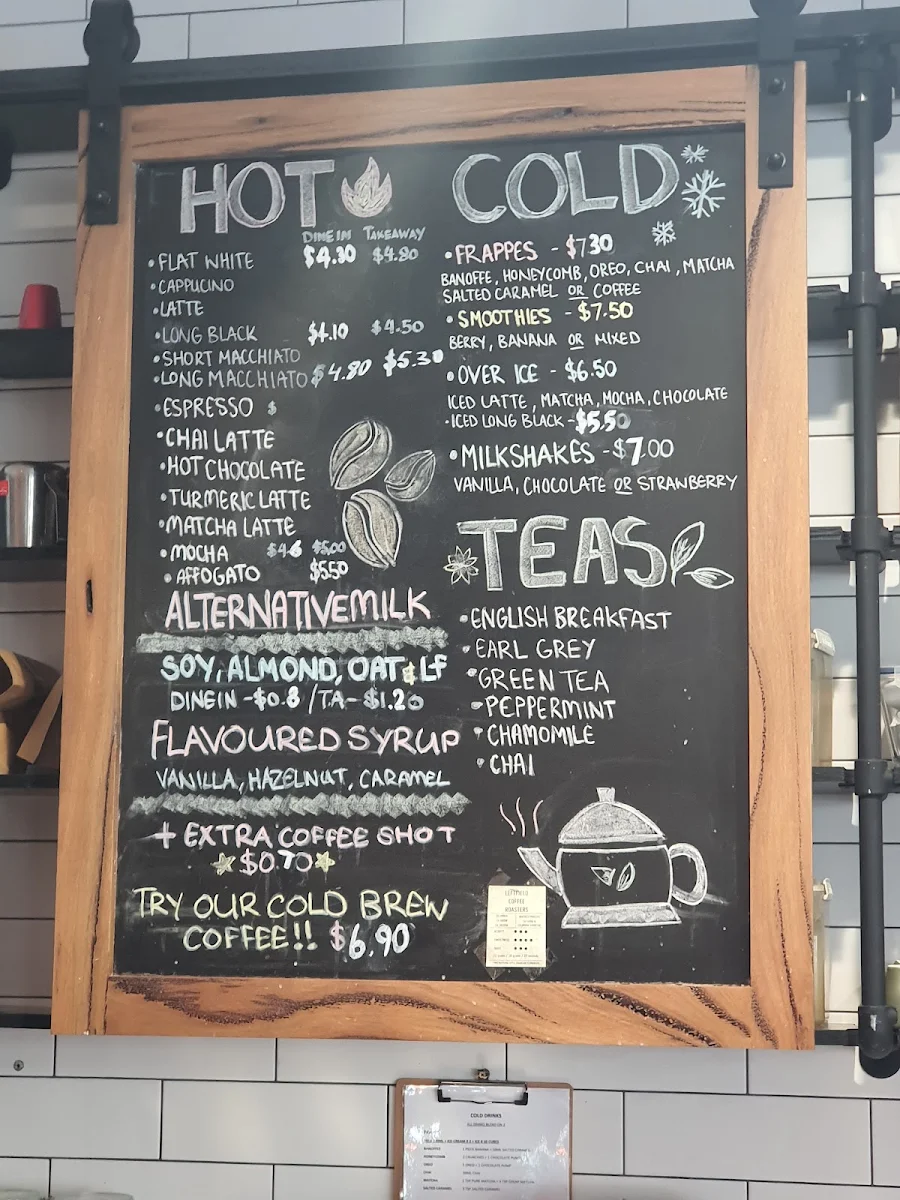 HOT
DINE IN TAKEAWAY
• FLAT WHITE $4.30 $4.80
• CAPPUCINO
• LATTE
• LONG BLACK $4.10 $4.50
• SHORT MACCHIATO
• LONG MACCHIATO $4.80 $5.30
• ESPRESSO $
• CHAI LATTE
• HOT CHOCOLATE
• TURMERIC LATTE
• MATCHA LATTE
• MOCHA $4.6 $5.00
• AFFOGATO $5.50
ALTERNATIVE MILK
SOY, ALMOND, OAT & LF
DINE IN - $0.8 / TA - $1.20
FLAVOURED SYRUP
VANILLA, HAZELNUT, CARAMEL
+ EXTRA COFFEE SHOT
$0.70
TRY OUR COLD BREW
COFFEE!! $6.90
COLD
• FRAPPES - $7.30
BANOFFE, HONEYCOMB, OREO, CHAI, MATCHA
SALTED CARAMEL OR COFFEE
• SMOOTHIES - $7.50
BERRY, BANANA OR MIXED
• OVER ICE - $6.50
ICED LATTE, MATCHA, MOCHA, CHOCOLATE
• ICED LONG BLACK - $5.50
• MILKSHAKES - $7.00
VANILLA, CHOCOLATE OR STRANBERRY
TEAS
• ENGLISH BREAKFAST
• EARL GREY
• GREEN TEA
• PEPPERMINT
• CHAMOMILE
• CHAI
COFFEE
ROASTERS
COLD DRINKS